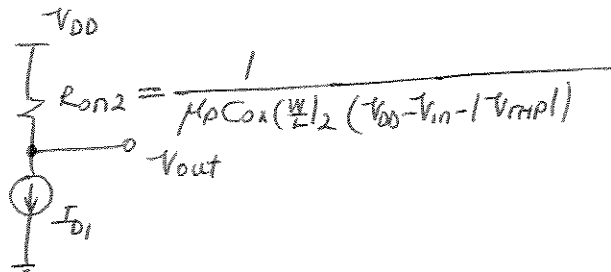 V_DD
R_on2 = 1 / (μ_p C_ox (W/L)_2 (V_DD - V_in - |V_THP|))
V_out
I_D1